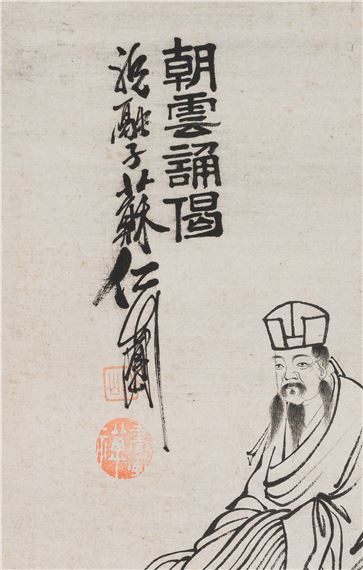 朝雲誦偈
祝融子蘇仁山